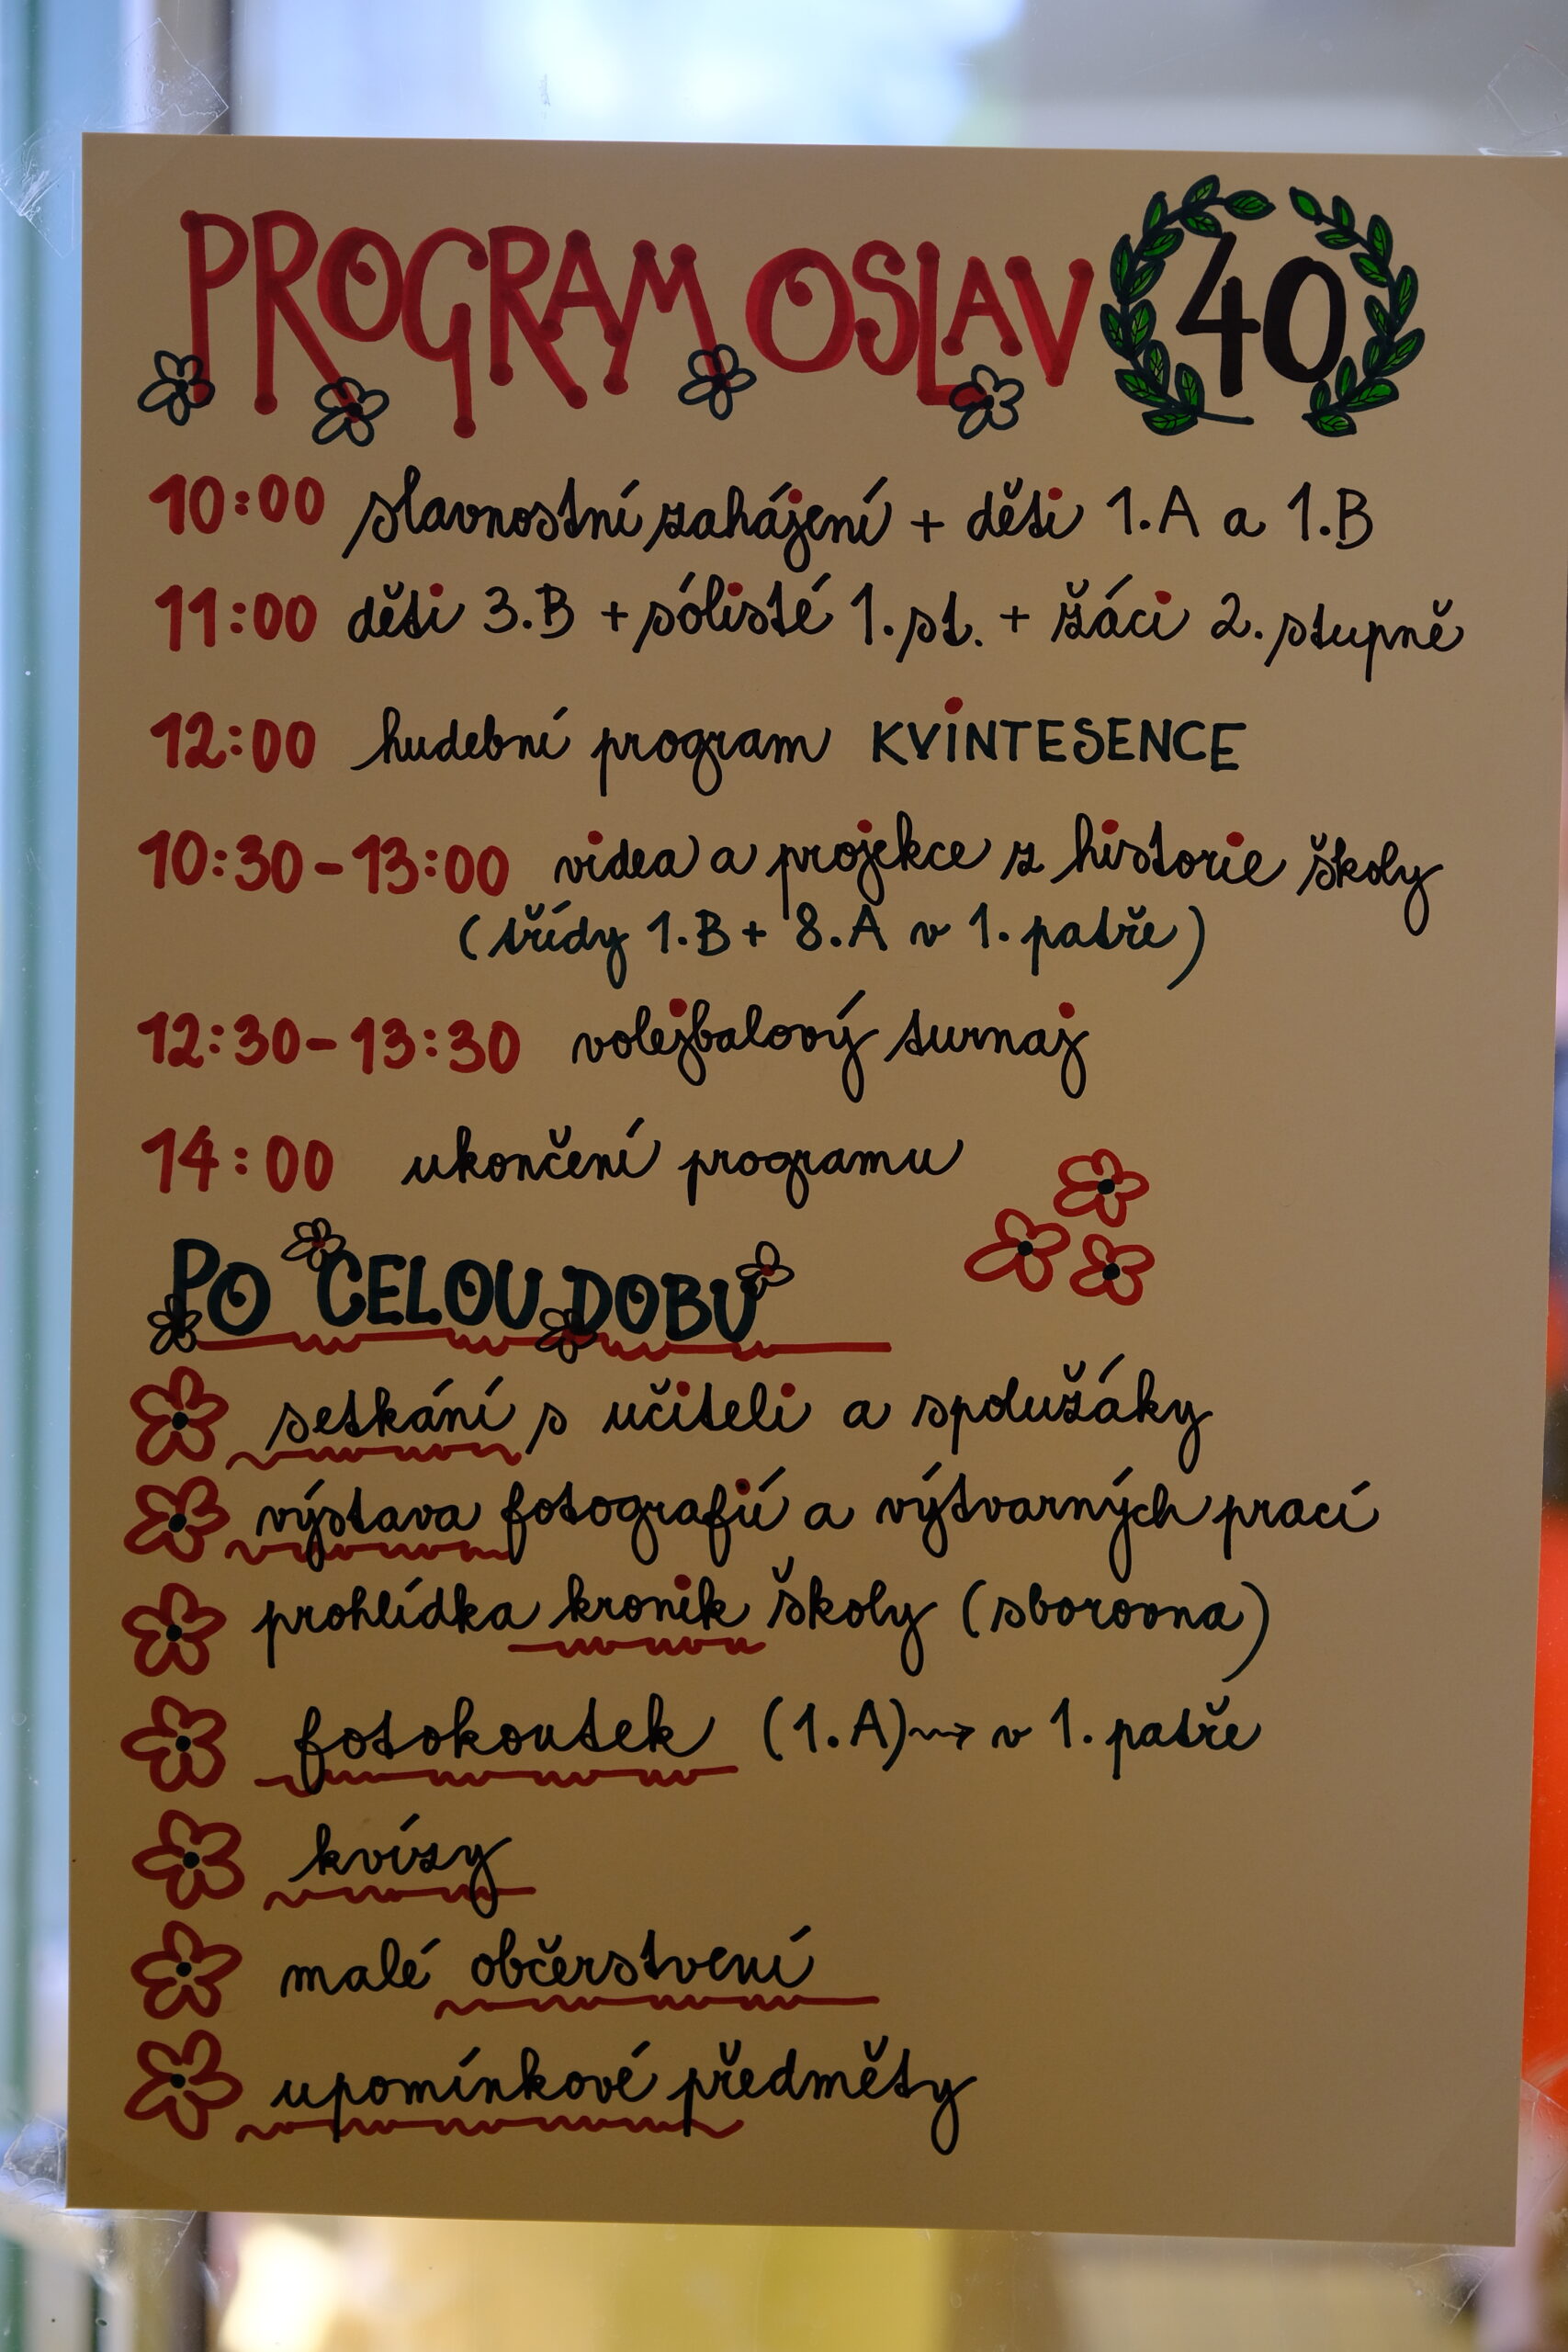 PROGRAM OSLAV 40
10:00 slavnostní zahájení + děti 1.A a 1.B
11:00 děti 3.B + sólisté 1.st. + žáci 2. stupně
12:00 hudební program KViNTESENCE
10:30-13:00 videa a projekce z historie školy
(třídy 1.B + 8.A v 1. patře)
12:30-13:30 volejbalový turnaj
14:00 ukončení programu
PO CELOU DOBU
setkání s učiteli a spolužáky
výstava fotografií a výtvarných prací
prohlídka kronik školy (sborovna)
fotokoutek (1.A)→ v 1. patře
kvízy
malé občerstvení
upomínkové předměty